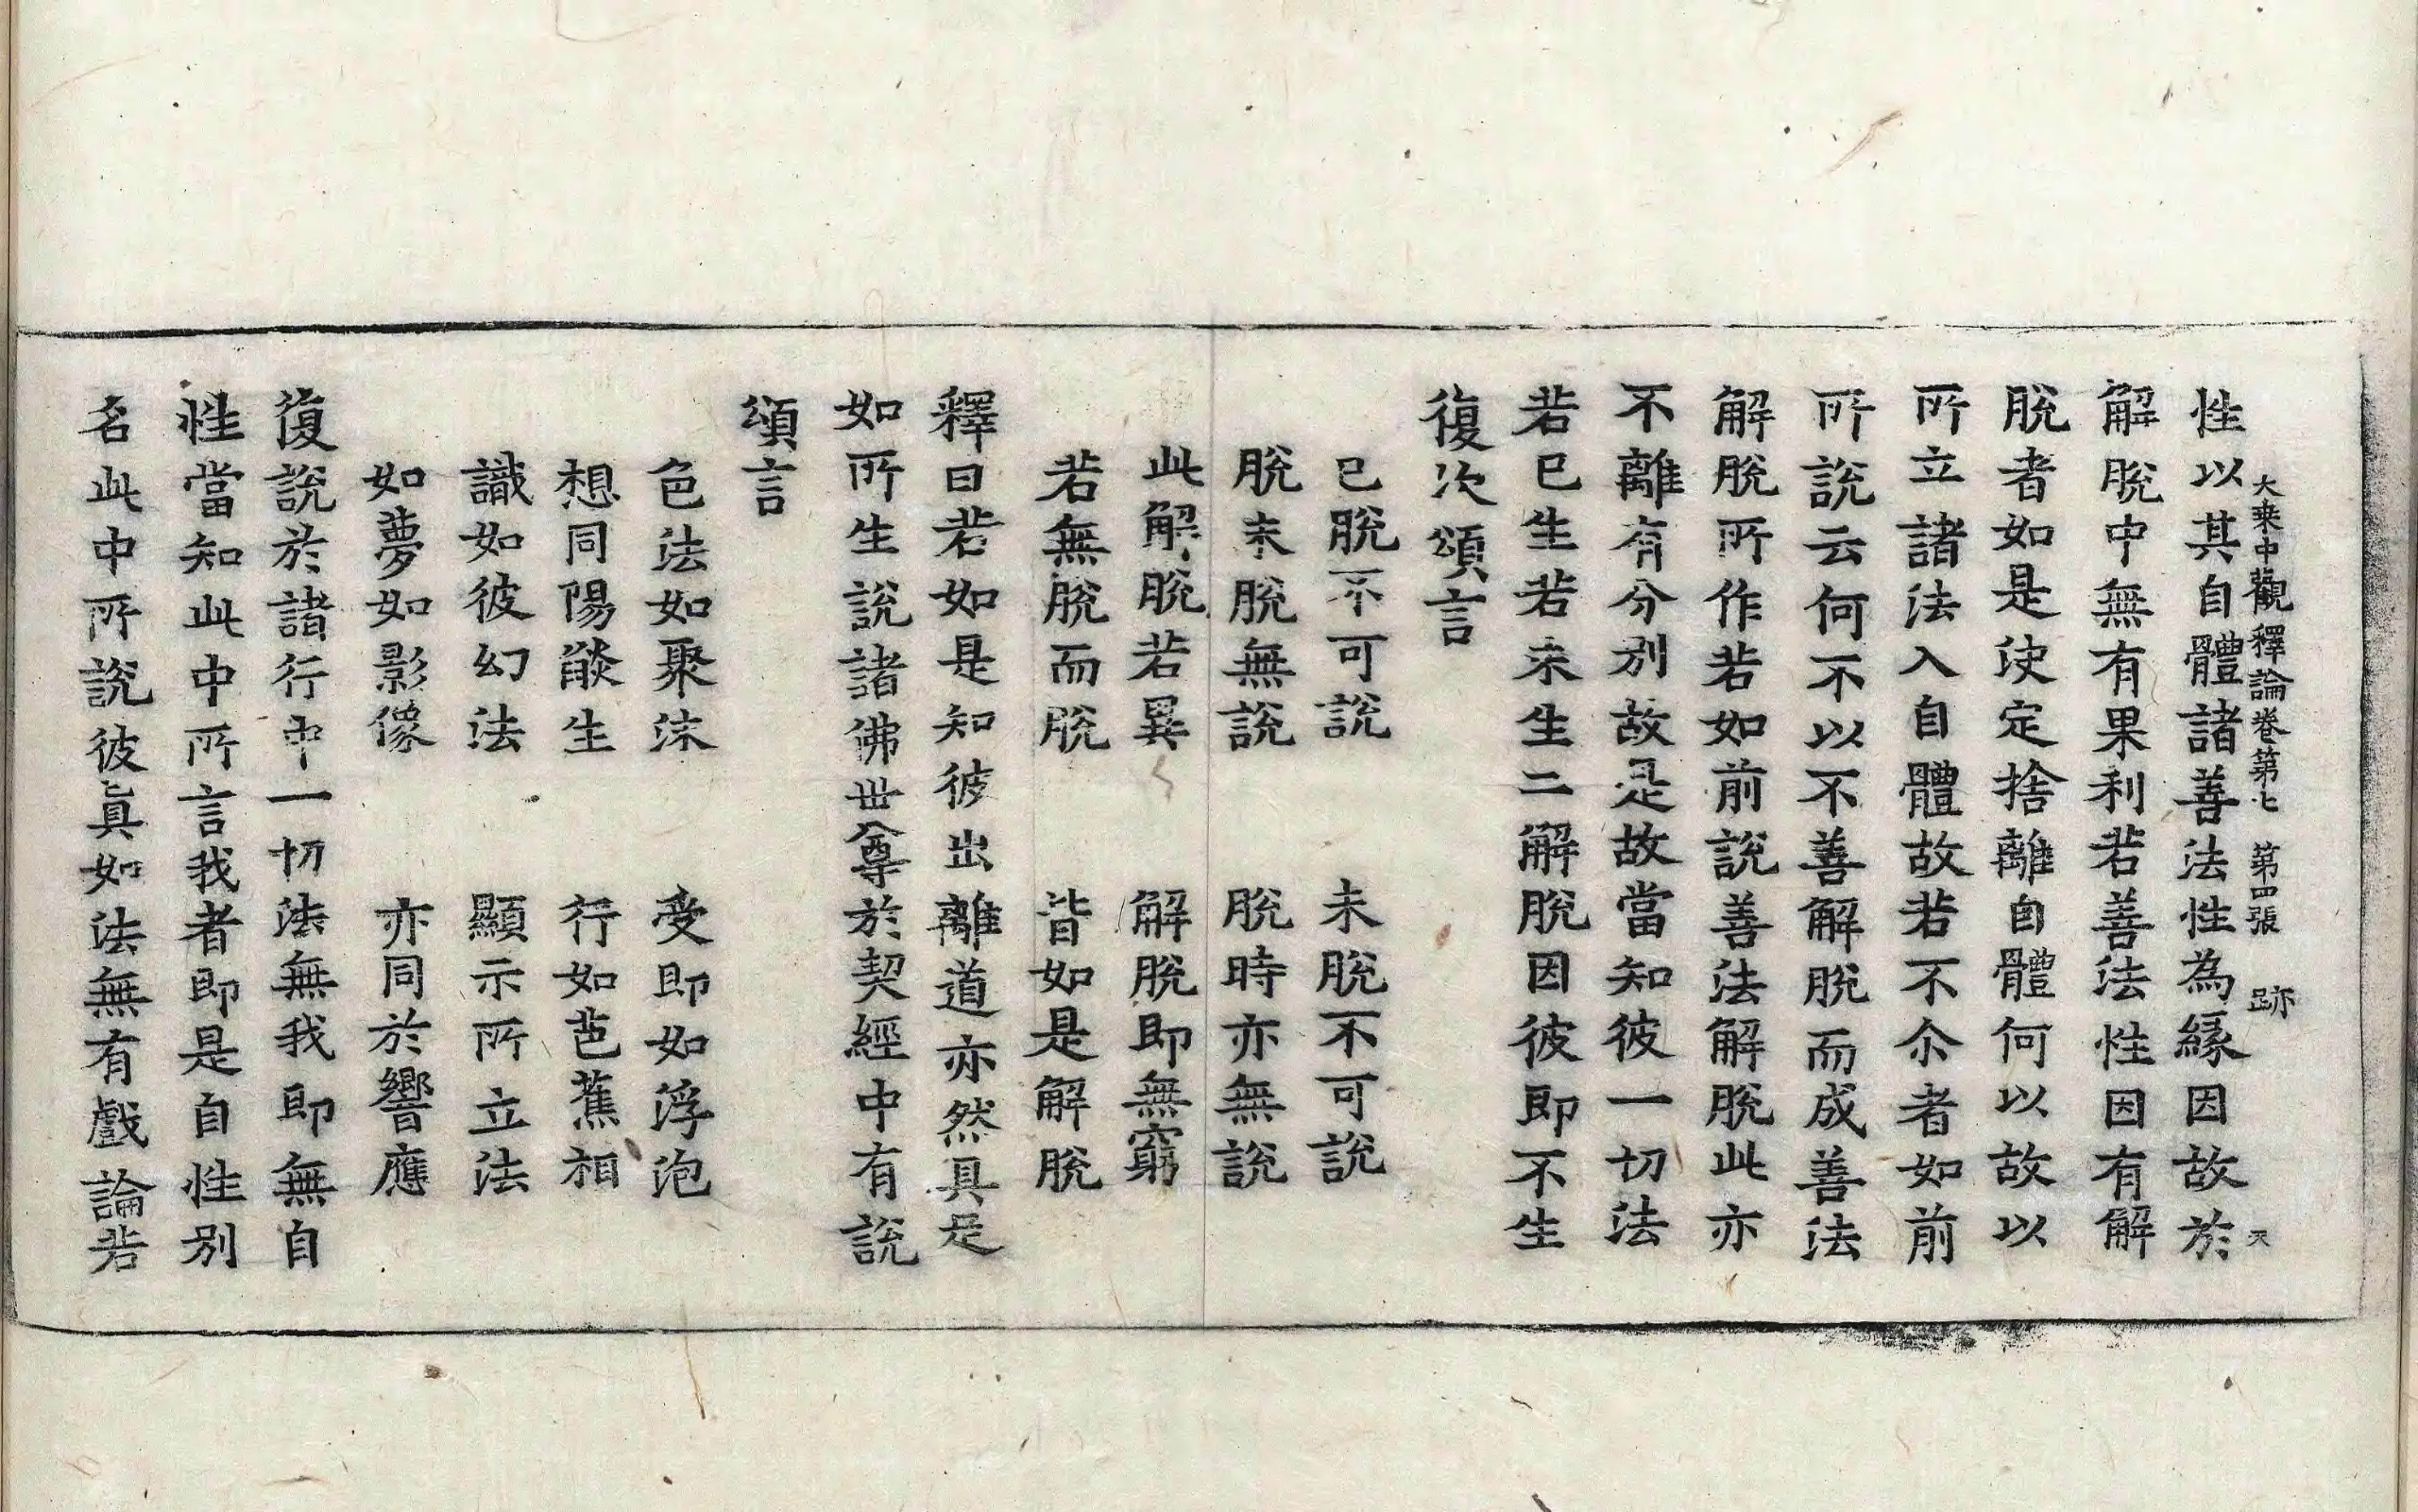 大乗中觀釋論卷第七 第四張 跡 天
性以其自體諸善法性為緣因故於
解脫中無有果利若善法性因有解
脫者如是決定捨離自體何以故以
所立諸法入自體故若不尒者如前
所說云何不以不善解脫而成善法
解脫所作若如前說善法解脫此亦
不離有分別故是故當知彼一切法
若已生若未生二解脫因彼即不生
復次頌言
已脫不可說 未脫不可說
脫未脫無說 脫時亦無說
此解脫若異 解脫即無窮
若無脫而脫 皆如是解脫
釋曰若如是知彼出離道亦然具足
如所生說諸佛世尊於契經中有說
頌言
色法如聚沫 受即如浮泡
想同陽燄生 行如芭蕉相
識如彼幻法 顯示所立法
如夢如影像 亦同於響應
復說於諸行中一切法無我即無自
性當知此中所言我者即是自性別
名此中所說彼眞如法無有戲論若